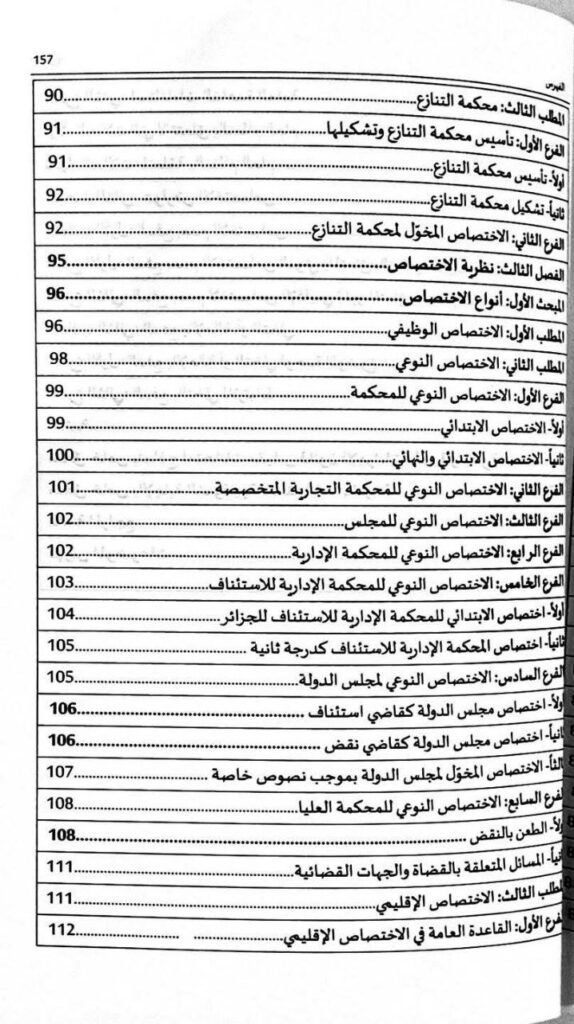 157
الفهرس
المطلب الثالث: محكمة التنازع......90
الفرع الأول: تأسيس محكمة التنازع وتشكيلها......91
أولاً- تأسيس محكمة التنازع......91
ثانياً- تشكيل محكمة التنازع......92
الفرع الثاني: الاختصاص المخوّل لمحكمة التنازع......92
الفصل الثالث: نظرية الاختصاص......95
المبحث الأول: أنواع الاختصاص......96
المطلب الأول: الاختصاص الوظيفي......96
المطلب الثاني: الاختصاص النوعي......98
الفرع الأول: الاختصاص النوعي للمحكمة......99
أولاً- الاختصاص الابتدائي......99
ثانياً- الاختصاص الابتدائي والنهائي......100
الفرع الثاني: الاختصاص النوعي للمحكمة التجارية المتخصصة......101
الفرع الثالث: الاختصاص النوعي للمجلس......102
الفرع الرابع: الاختصاص النوعي للمحكمة الإدارية......102
الفرع الخامس: الاختصاص النوعي للمحكمة الإدارية للاستئناف......103
أولاً- اختصاص الابتدائي للمحكمة الإدارية للاستئناف للجزائر......104
ثانياً- اختصاص المحكمة الإدارية للاستئناف كدرجة ثانية......105
الفرع السادس: الاختصاص النوعي لمجلس الدولة......105
أولاً- اختصاص مجلس الدولة كقاضي استئناف......106
ثانياً- اختصاص مجلس الدولة كقاضي نقض......106
ثالثاً- الاختصاص المخوّل لمجلس الدولة بموجب نصوص خاصة......107
الفرع السابع: الاختصاص النوعي للمحكمة العليا......108
أولاً- الطعن بالنقض......108
ثانياً- المسائل المتعلقة بالقضاة والجهات القضائية......111
المطلب الثالث: الاختصاص الإقليمي......111
الفرع الأول: القاعدة العامة في الاختصاص الإقليمي......112